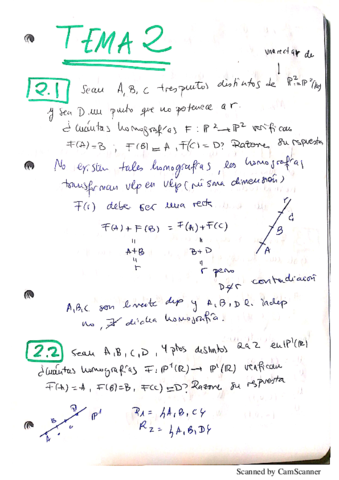 TEMA 2
2.1 Sean A, B, C tres puntos distintos de
y sea D un punto que no pertenece a r
¿Cuántas homografías F: P² → P² verifican
F(A)=B, F(B)=A, F(C)=D? Razone su respuesta
No existen tales homografías, las homografías
transforman vlp en vlp (misma dimensión)
F(C) debe ser una recta
F(A)+F(B) = F(A)+F(C)
A+B B+D
r r pero
D∉r contradicción
r
C
B
A
A, B, C son linealmente dep y A, B, D l. indep
no, ∄ dicha homografía.
2.2 Sean A, B, C, D, 4 ptos distintos 2 a 2 en P¹(R)
¿Cuántas homografías F: P¹(R) → P¹(R) verifican
F(A)=A, F(B)=B, F(C)=D? Razone su respuesta
P¹
R₁ = {A, B, C}
R₂ = {A, B, D}
Scanned by CamScanner